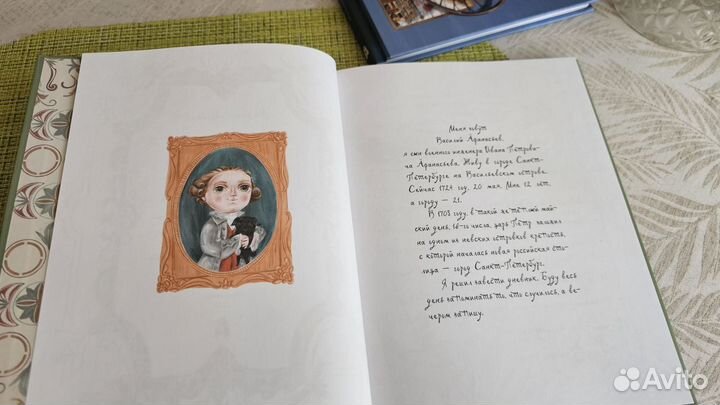 Меня зовут
Василий Афанасьев,
я сын военного инженера Ивана Петрови-
ча Афанасьева. Живу в городе Санкт-
Петербурге на Васильевском острове.
Сейчас 1724 год, 20 мая. Мне 12 лет,
а городу — 21.
В 1703 году, в такой же тёплый май-
ский день, 16-го числа, царь Пётр заложил
на одном из невских островков крепость,
с которой началась новая российская сто-
лица — город Санкт-Петербург.
Я решил завести дневник. Буду весь
день запоминать то, что случилось, а ве-
чером запишу.
Avito